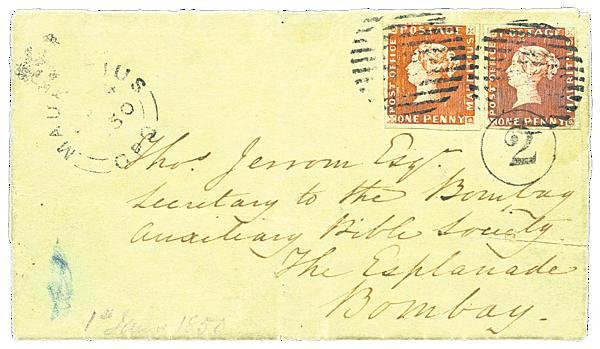 MAURITIUS
GPO
POST OFFICE
POSTAGE
MAURITIUS
ONE PENNY
POST OFFICE
POSTAGE
MAURITIUS
ONE PENNY
2
Thos Jerrom Esqr.
Secretary to the Bombay
Auxiliary Bible Society.
The Esplanade
Bombay.
1st Jany 1850